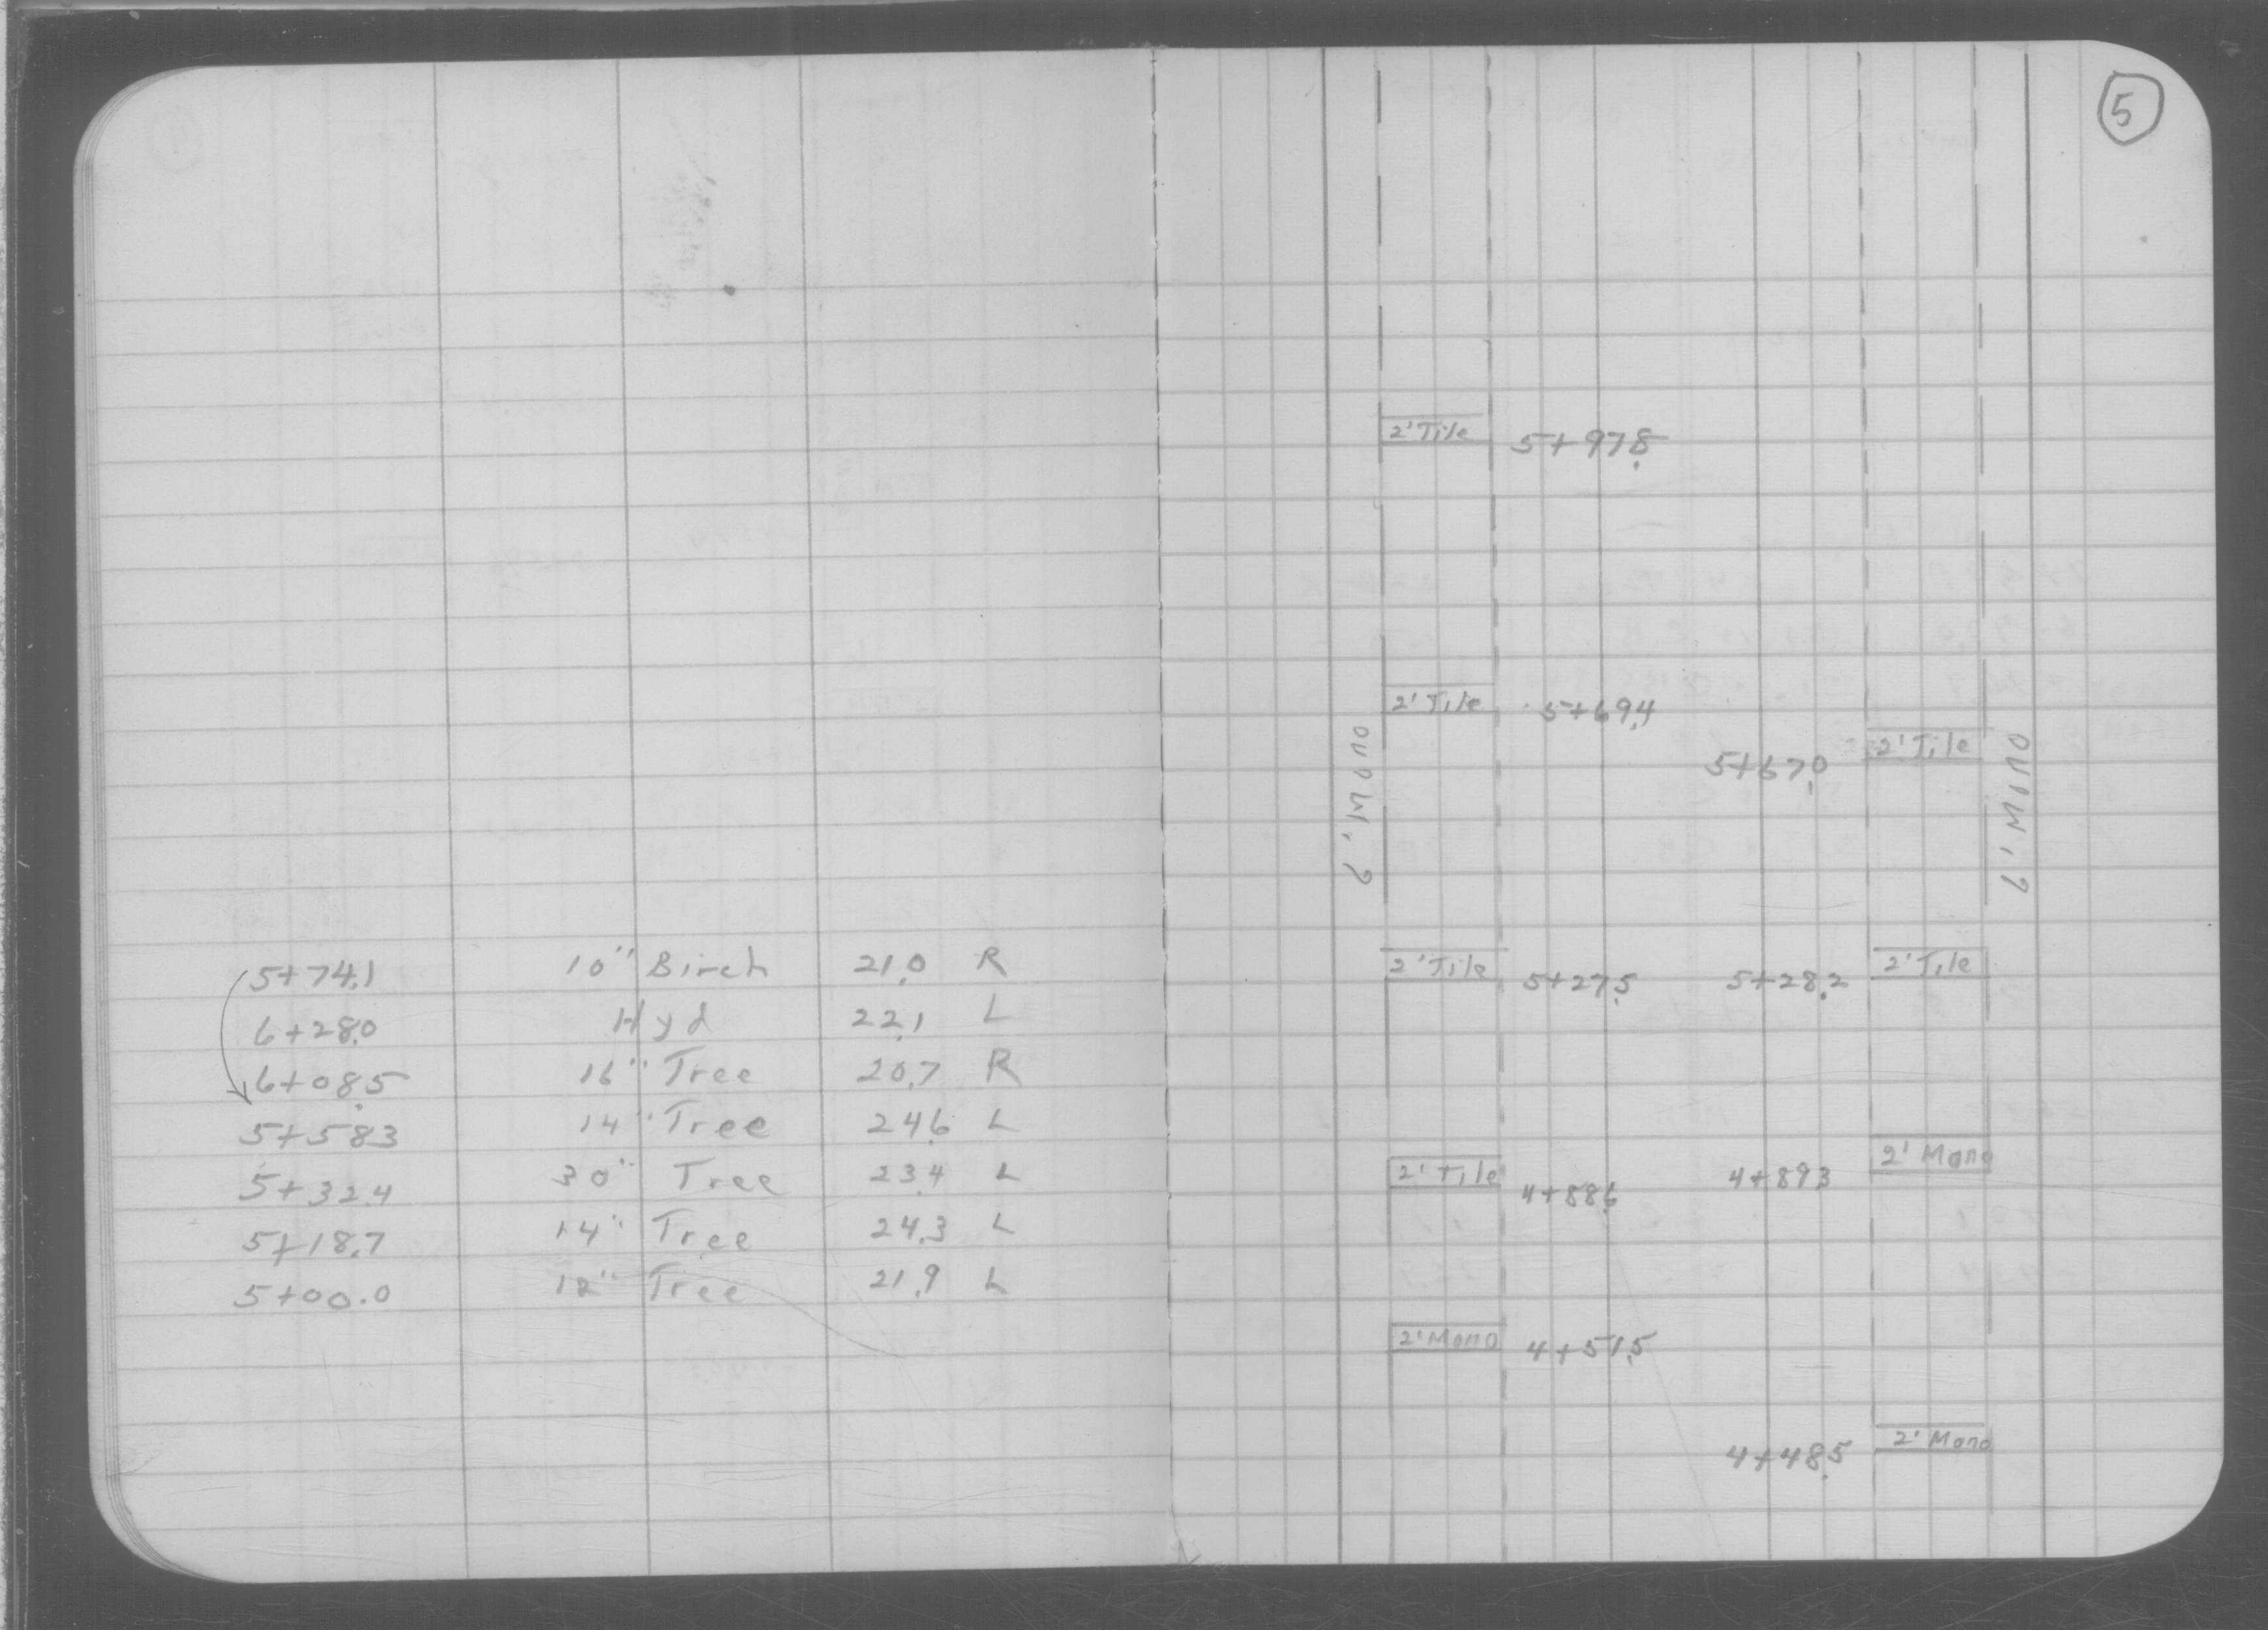 5+74.1 10" Birch 21.0 R
6+28.0 Hyd 22.1 L
6+08.5 16" Tree 20.7 R
5+58.3 14" Tree 24.6 L
5+32.4 30" Tree 23.4 L
5+18.7 14" Tree 24.3 L
5+00.0 12" Tree 21.9 L
5
2' Tile 5+97.8
2' Tile 5+69.4
5+67.0 2' Tile
6' Mono
6' Mono
2' Tile 5+27.5 5+28.2 2' Tile
2' Tile 4+88.6 4+89.3 2' Mono
2' Mono 4+51.5
4+48.5 2' Mono